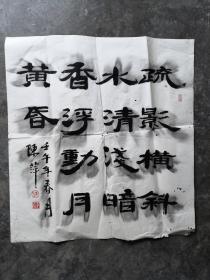 疏影橫斜
水清淺暗
香浮動月
黄昏
壬午年春月
陳